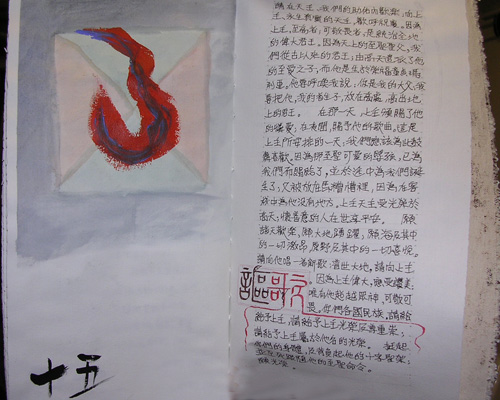 請在天主、我們的助佑內歡樂,向上
主、永生真實的天主,歡呼祝慶。因為
上主,至高者;可敬畏者,是統治全地
的偉大君王。因為天上的至聖聖父,我
們從古以來的君王,由高天遣派了他
的至愛之子;而他是生於榮福童貞瑪
利亞。他曾呼求我說,你是我的大父;我
要把他,我的首生子,放在高處,高出地
上的君王。 在那一天,上主頒賜了他
的慈愛,在夜間,賜予他的歌曲。這是
上主所安排的一天,我們應該為此鼓
舞喜歡。因為那至聖可愛的嬰孩,已為
我們而賜給了,並於途中為我們誕
生了;又被放在馬槽裡,因為在客
棧中為他沒有地方。上主天主受光榮於
高天,懷善意的人在世享平安。 願
諸天歡樂,願大地踴躍,願海及其中
的一切激昂,原野及其中的一切喜悅。
請向他唱一首新歌;普世大地,請向上主
謳歌。因為上主偉大,應受讚美,
唯有他超越眾神,可敬可
畏。你們各國民族,請給
給予上主,請給予上主光榮及尊崇;
請給予上主屬於他名的光榮。 抬起
你們的身體,及背負起他的十字聖架;
他的至聖命令。
十五